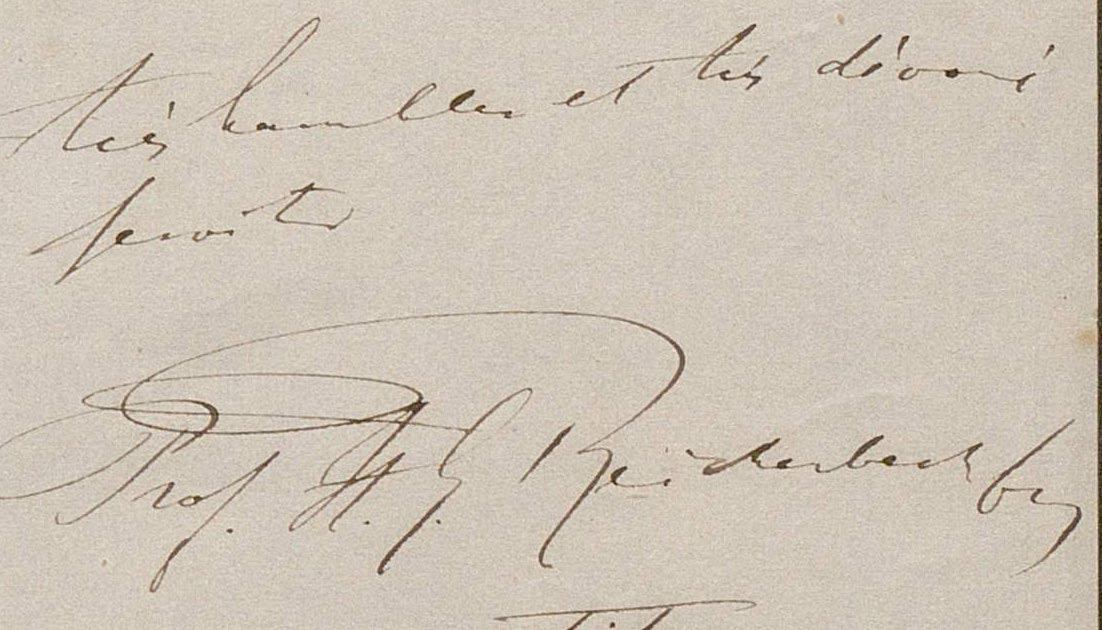 très humble et très dévoué
servitr
Prof. H. G. Reichenbach